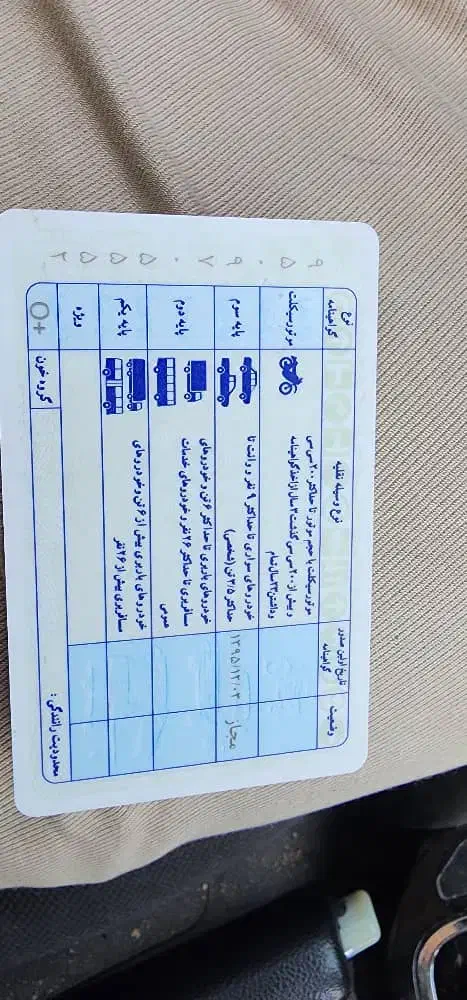 ۹۵۰۹۷۰۵۵۵۲
نوع گواهینامه نوع وسیله نقلیه تاریخ اولین صدور گواهینامه وضعیت
موتورسیکلت موتورسیکلت با حجم موتور تا حداکثر ۲۰۰ سی سی
و بیش از ۲۰۰ سی سی گذشت ۳ سال از اخذ گواهینامه
و داشتن ۲۳ سال تمام
پایه سوم خودروهای سواری تا حداکثر ۹ نفر و وانت تا
حداکثر ۳/۵ تن (شخصی) ۱۳۹۵/۱۲/۰۳ مجاز
پایه دوم خودروهای باربری تا حداکثر ۶ تن و خودروهای
مسافربری تا حداکثر ۲۶ نفر و خودروهای خدمات
عمومی
پایه یکم خودروهای باربری بیش از ۶ تن و خودروهای
مسافربری بیش از ۲۶ نفر
ویژه
گروه خون محدودیت رانندگی :
O+